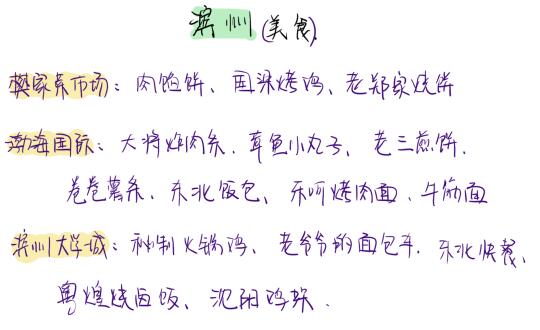 滨州(美食).
樊家菜市场：肉馅饼、国梁烤鸡、老郑家烧饼
渤海国际：大将炸肉条、章鱼小丸子、老三煎饼、
卷卷薯条、东北饭包、乐呵烤肉面、牛筋面
滨州大学城：秘制火锅鸡、老爷爷的面包车、东北快餐、
粤煌烧卤饭、沈阳鸡架.